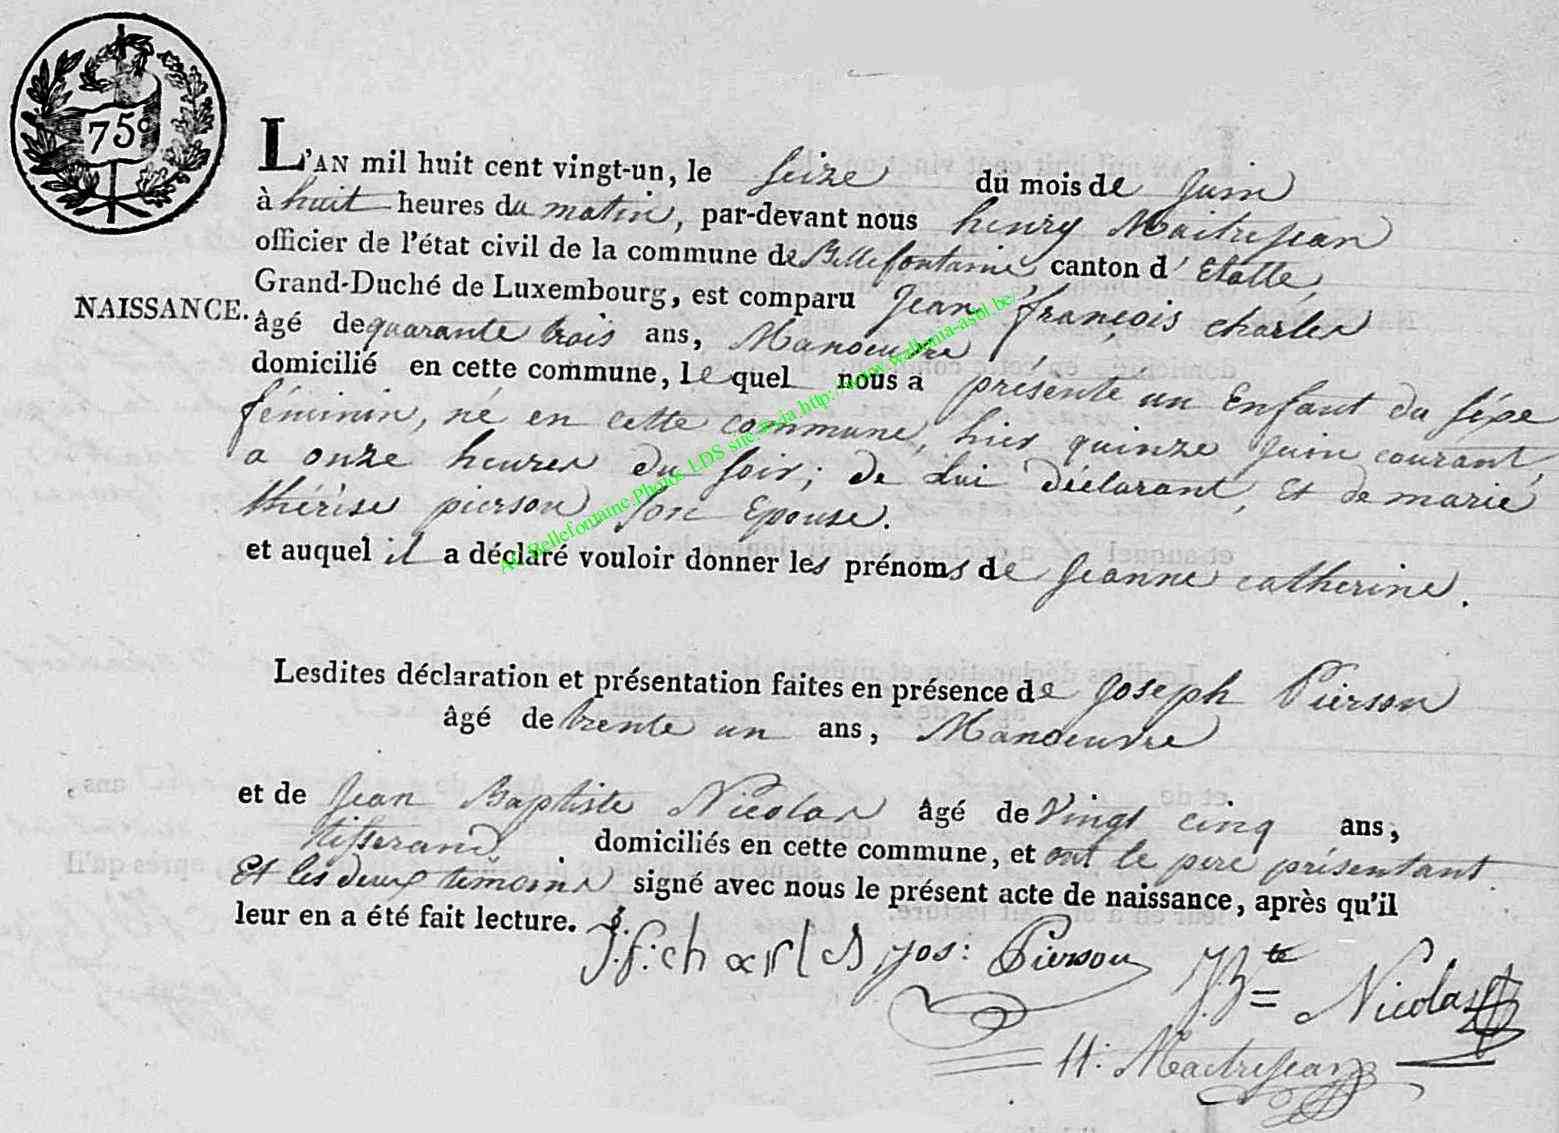 75c
L'AN mil huit cent vingt-un, le seize du mois de Juin
à huit heures du matin, par-devant nous henry Maitrejean
officier de l'état civil de la commune de Bellefontaine, canton d'Etalle,
Grand-Duché de Luxembourg, est comparu Jean françois charles
NAISSANCE.
âgé de quarante trois ans, Manoeuvre
domicilié en cette commune, lequel nous a présenté un Enfant du séxe
féminin, né en cette commune, hier quinze Juin courant,
a onze heures du soir; de Lui déclarant, Et de marie
thérèse pierson son Epouse.
et auquel il a déclaré vouloir donner les prénoms de Jeanne catherine.
Lesdites déclaration et présentation faites en présence de Joseph Pierson
âgé de trente un ans, Manoeuvre
et de Jean Baptiste Nicolas âgé de Vingt cinq ans,
tisserand domiciliés en cette commune, et ont le pere présentant
Et les deux témoins signé avec nous le présent acte de naissance, après qu'il
leur en a été fait lecture.
J.f: charles Jos: Pierson J.Bte = Nicolas
H: Maitrejean
Bellefontaine Photos LDS http://www.wallonia-asbl.be/